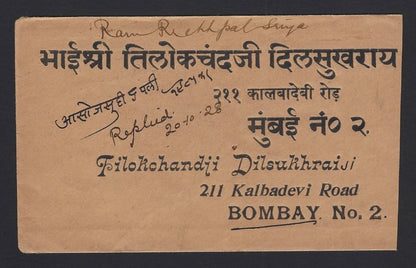 Ram Richhpal
भाईश्री तिलोकचंदजी दिलसुखराय
२११ कालबादेवी रोड़
मुंबई नं० २.
Replied
20-10-28
Tilokchandji Dilsukhraiji
211 Kalbadevi Road
BOMBAY. No. 2.